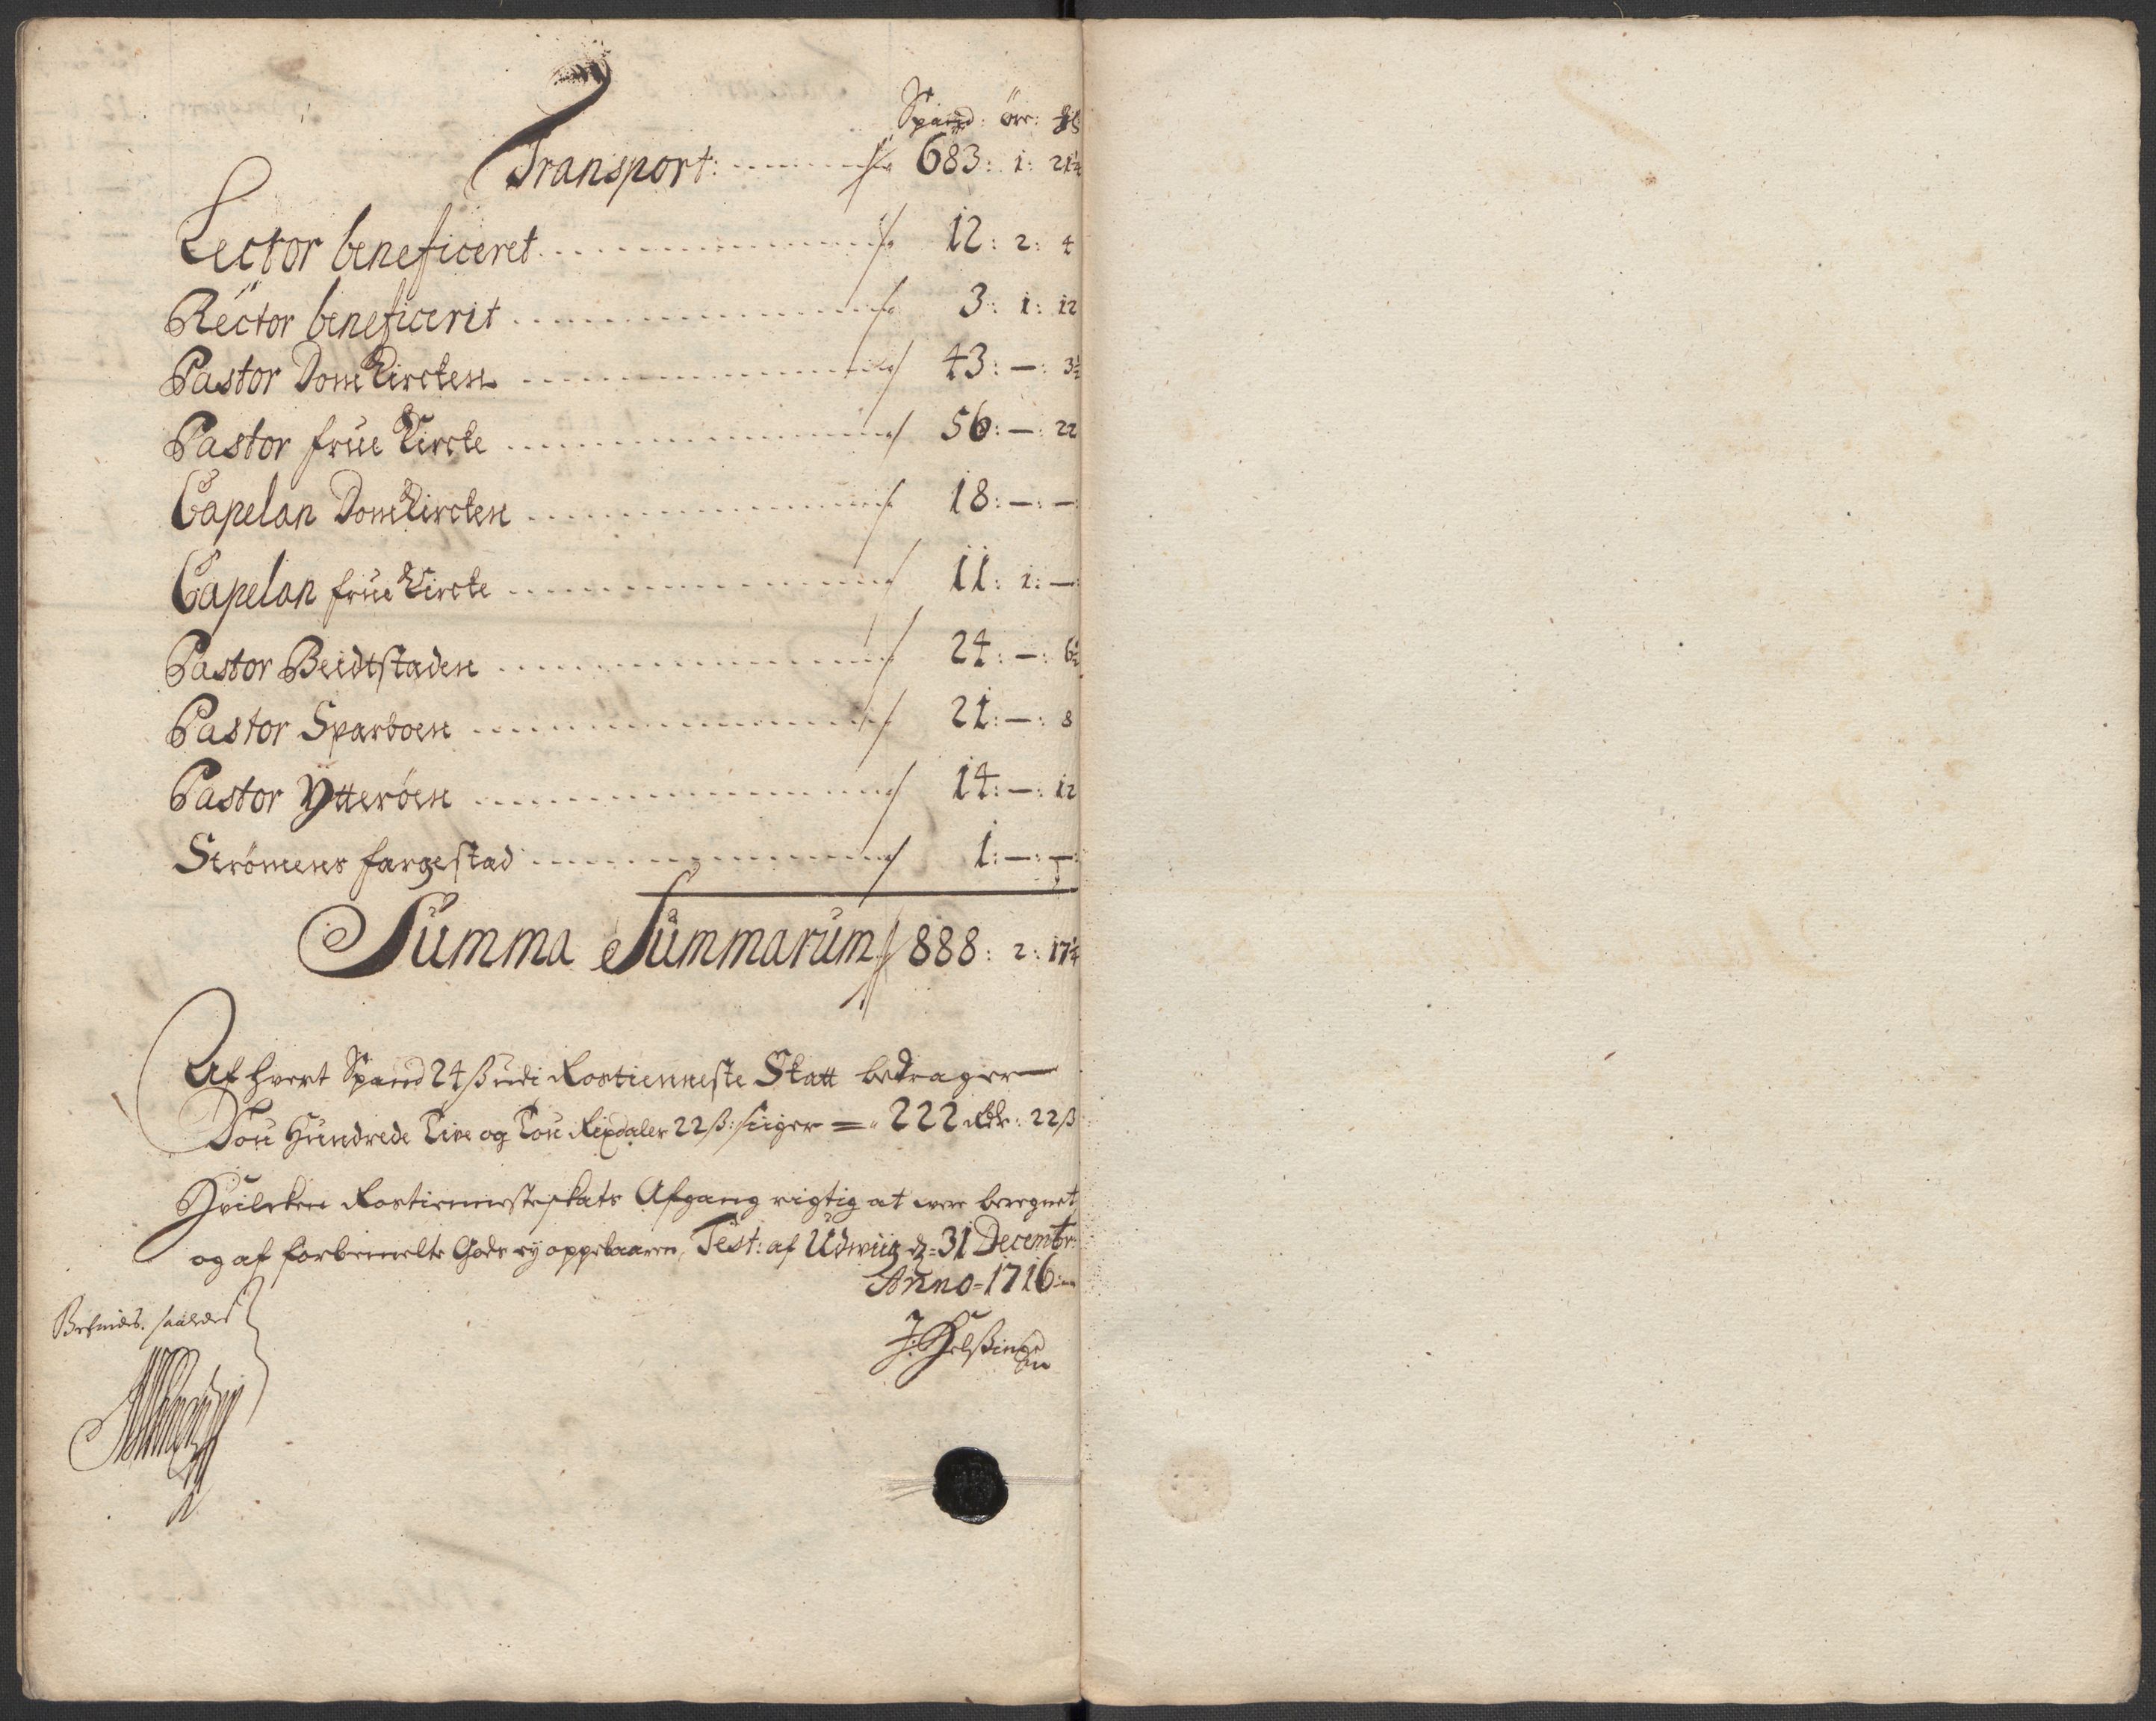 Spand: örr: ßl
Transport: 683: 1: 21¼
Lector beneficeret 12: 2: 4
Rector beneficerit 3: 1: 12
Pastor Dom Kircken 43: —: 3½
Pastor frue Kircke 56: —: 22
Capelan Dom Kircken 18: —: —
Capelan frue Kircke 11: 1: —
Pastor Beidtstaden 24: —: 6½
Pastor Sparboen 21: —: 8
Pastor Ytteröen 14: —: 12
Strömens fargestad 1: —: —
Summa Summarum 888: 2: 17¼
Af hvert Spand 24 ß udi Rostienneste Skatt bedrager
Tou Hundrede Tive og Tou Rixdaler 22 ß: siiger = 222 Rdr: 22 ß
Hvilcken Rostienneste skats Afgang rigtig at were beregnet
og af forbemelte Gods ej oppebaaren, Test: af Udwiig d: 31 Decembr:
Anno = 1716
Befindes saaledes